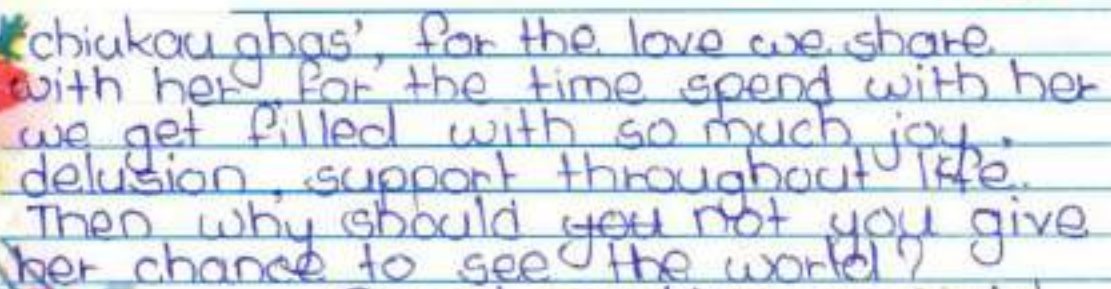 chiukau ghas', for the love we share
with her, for the time spend with her
we get filled with so much joy,
delusion, support throughout life.
Then why should you not you give
her chance to see the world?